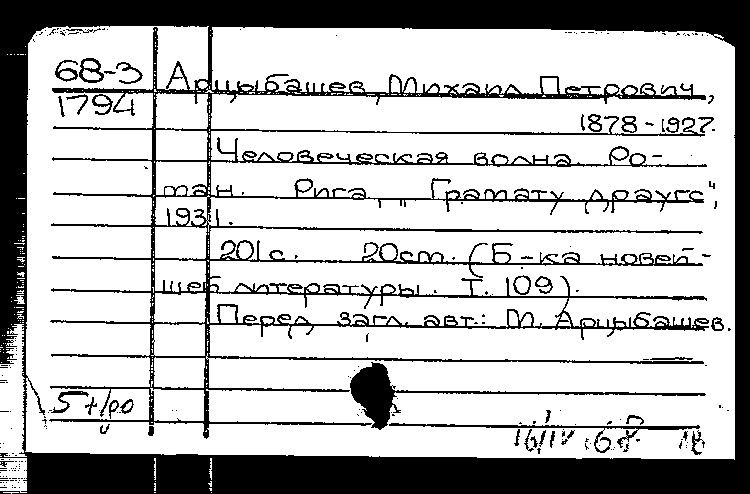 68-3 Арцыбашев, Михаил Петрович,
1794
1878-1927.
Человеческая волна. Ро-
ман. Рига, "Грамату драугс",
1931.
201с. 20см. (Б-ка новей-
шей литературы. Т. 109).
Перед загл. авт.: М. Арцыбашев.
16/IV 68